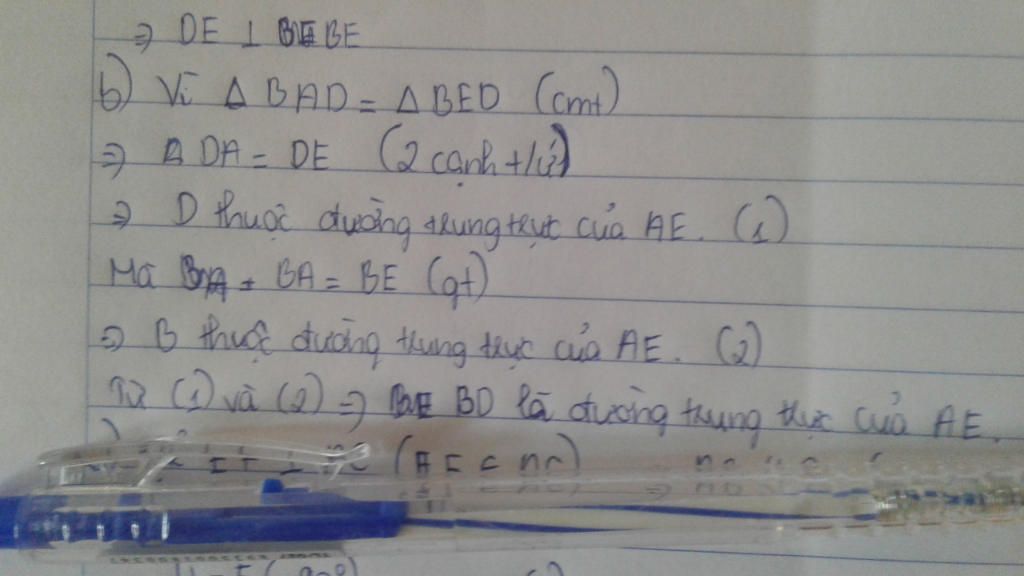 => DE ⊥ BE
b) Vì Δ BAD = Δ BED (cmt)
=> DA = DE (2 cạnh t/ứ)
=> D thuộc đường trung trực của AE. (1)
Mà BA = BE (gt)
=> B thuộc đường trung trực của AE. (2)
Từ (1) và (2) => BD là đường trung trực của AE.